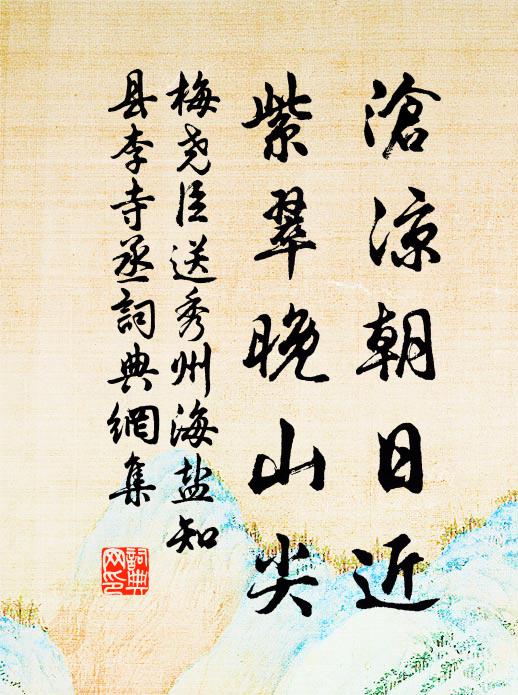 滄涼朝日近
紫翠晚山尖
梅尧臣送秀州海盐知
县李寺丞詞典網集
詞典
网印